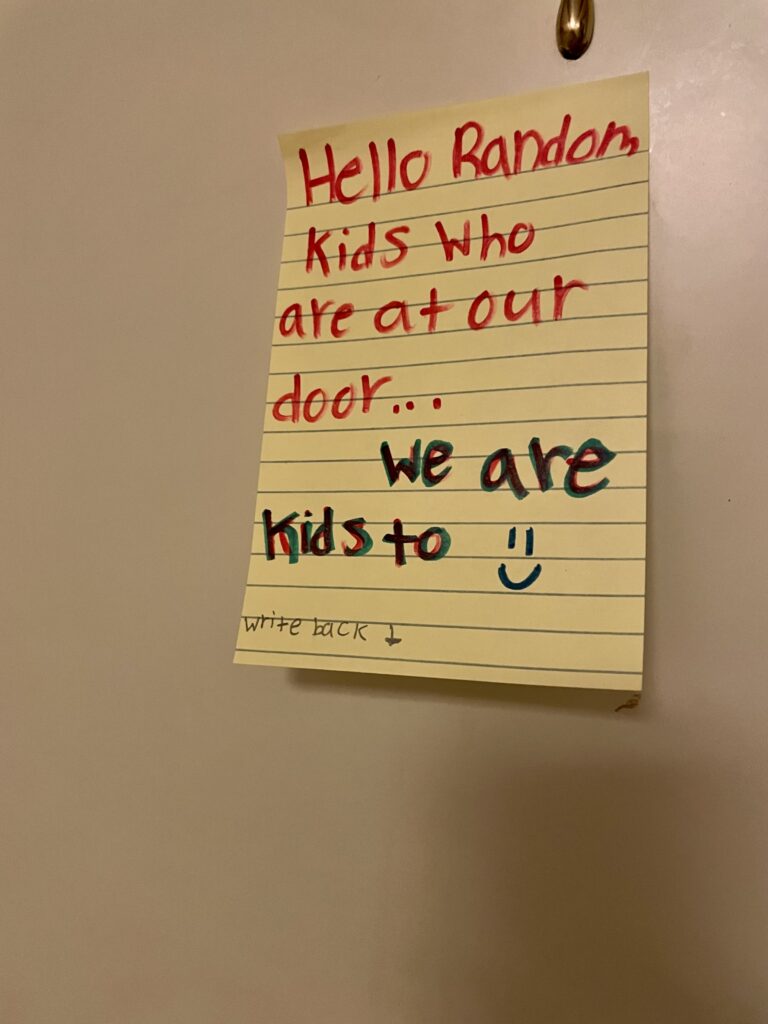 Hello Random
Kids Who
are at our
door...
We are
Kids to
write back ↓